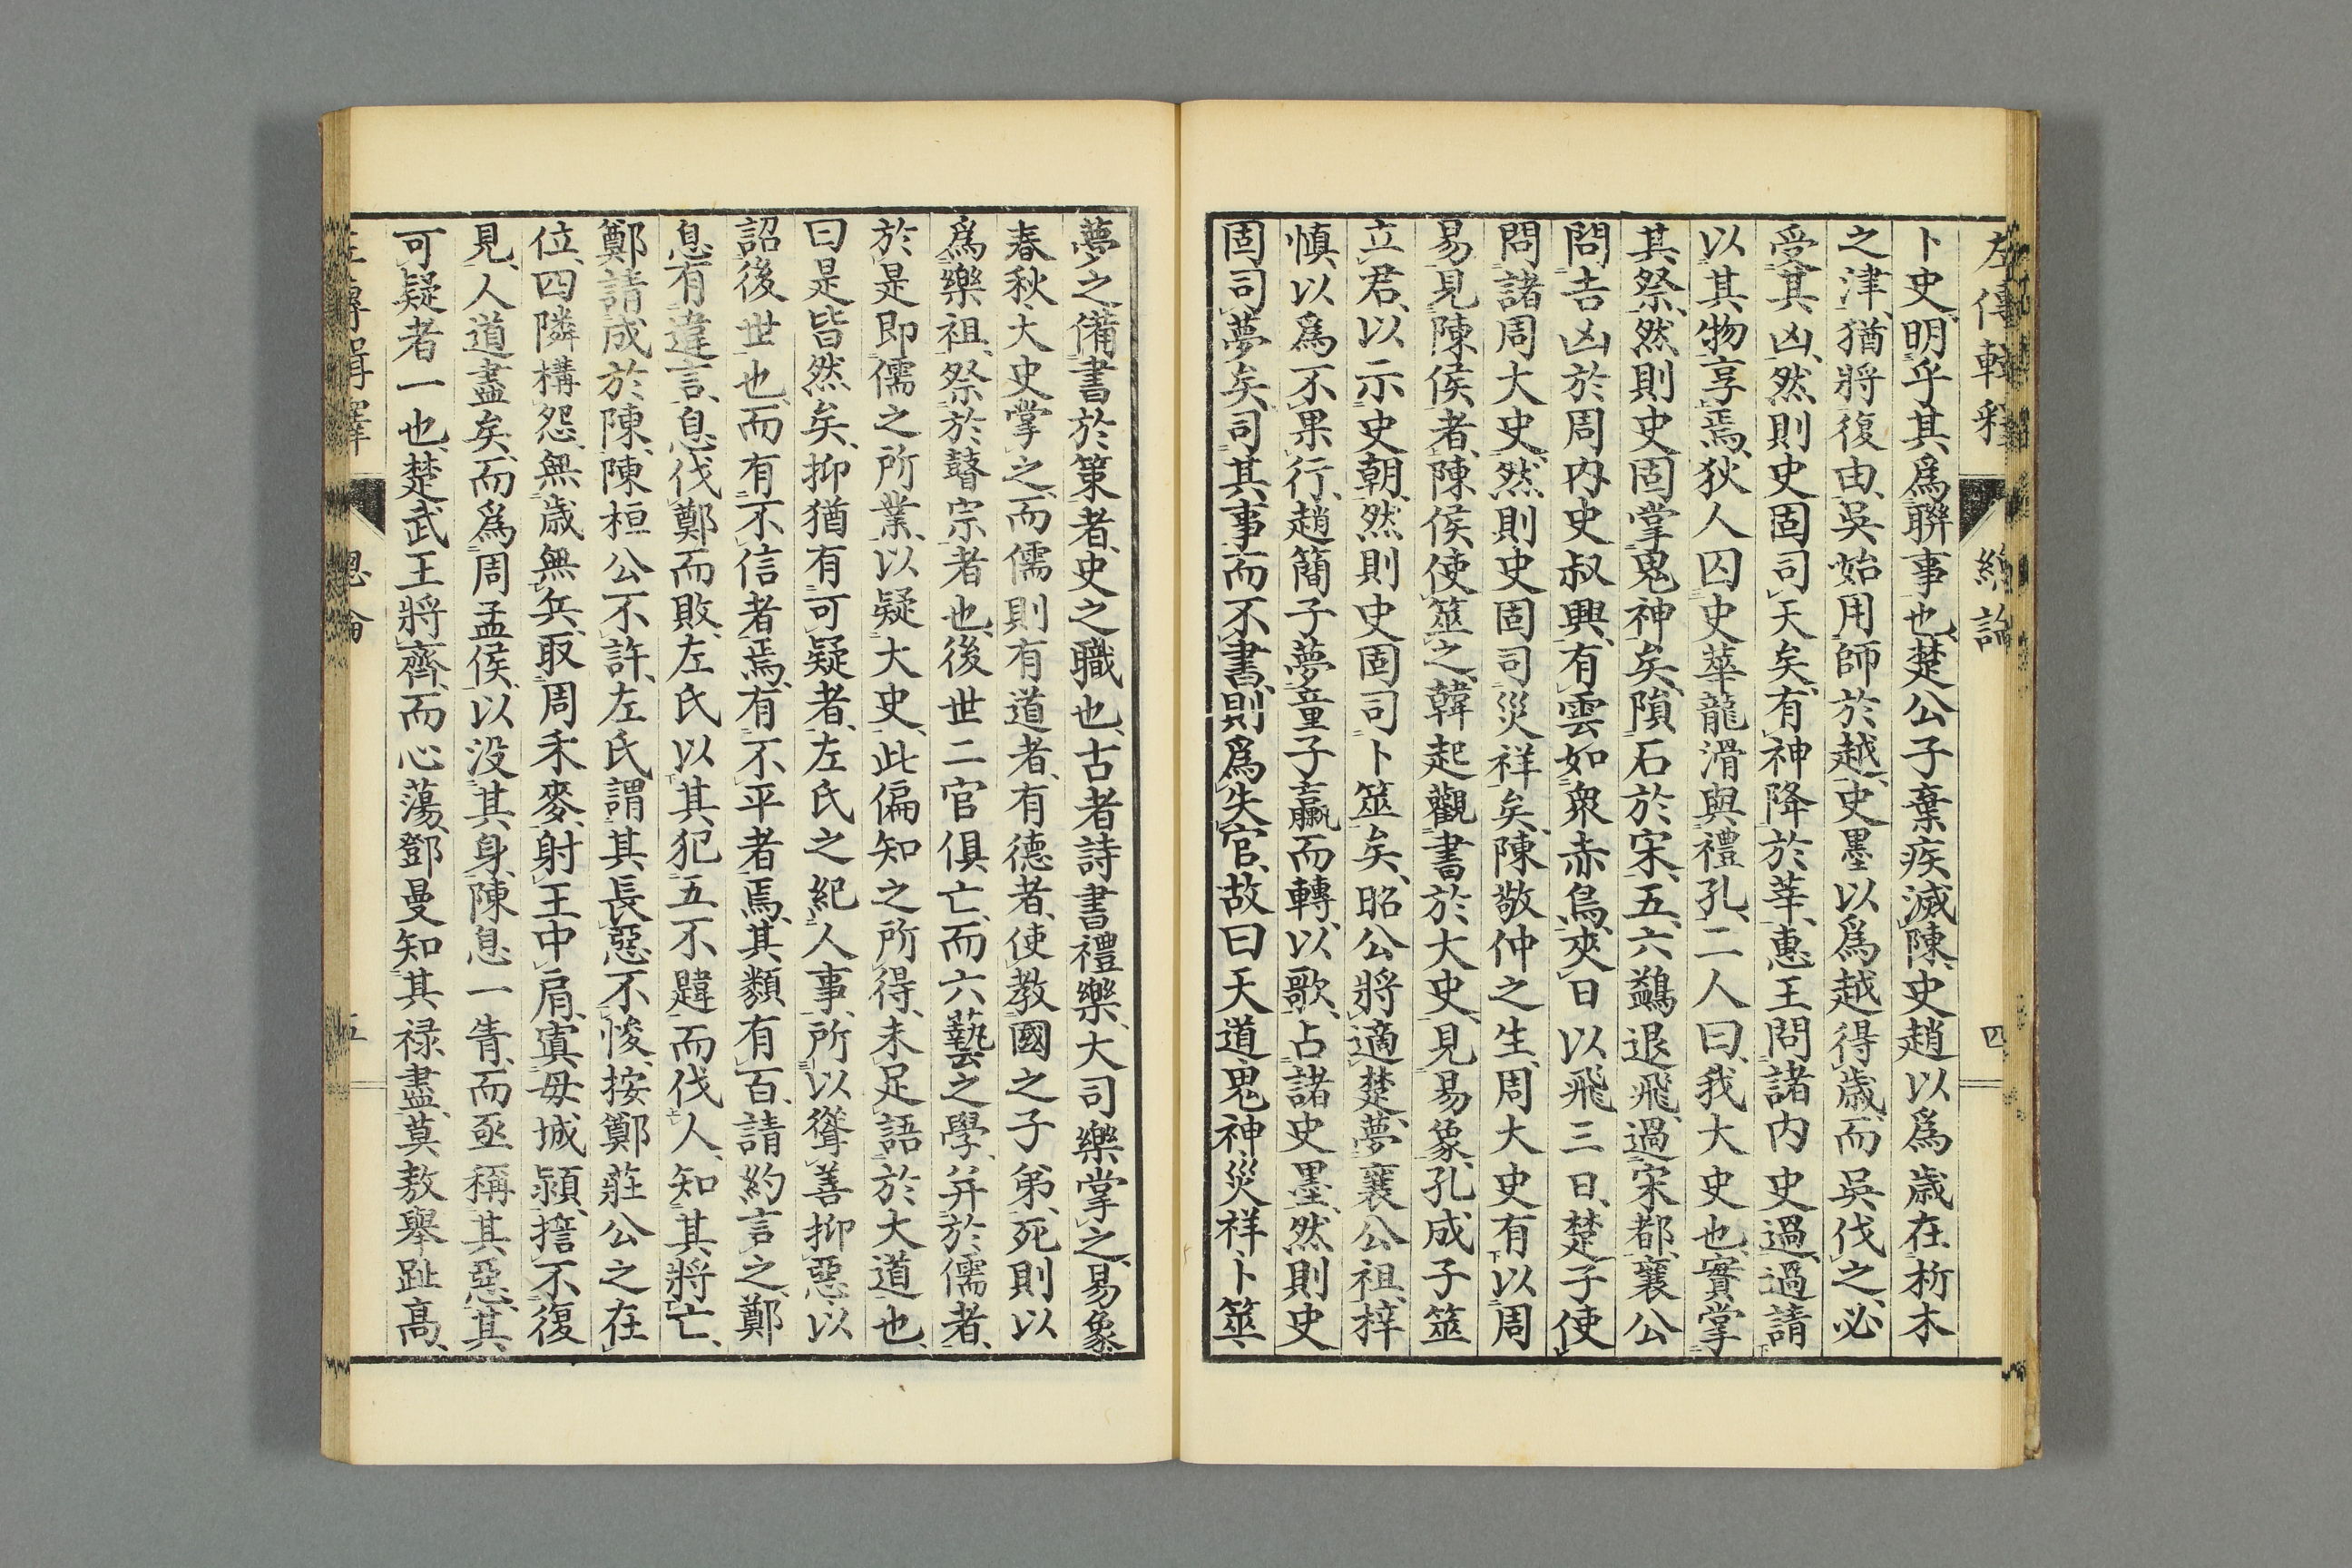 左傳輯釋 總論 四
卜史明乎其爲聯事也楚公子棄疾滅陳史趙以爲歲在析木
之津猶將復由吳始用師於越史墨以爲越得歲而吳伐之必
受其凶然則史固司天矣有神降於莘惠王問諸内史過過請
以其物享焉狄人囚史華龍滑與禮孔二人曰我大史也實掌
其祭然則史固掌鬼神矣隕石於宋五六鷁退飛過宋都襄公
問吉凶於周内史叔興有雲如衆赤烏夾日以飛三日楚子使
問諸周大史然則史固司災祥矣陳敬仲之生周大史有以周
易見陳侯者陳侯使筮之韓起觀書於大史見易象孔成子筮
立君以示史朝然則史固司卜筮矣昭公將適楚夢襄公祖梓
慎以爲不果行趙簡子夢童子羸而轉以歌占諸史墨然則史
固司夢矣司其事而不書則爲失官故曰天道鬼神災祥卜筮
夢之備書於策者史之職也古者詩書禮樂大司樂掌之易象
春秋大史掌之而儒則有道者有德者使教國之子弟死則以
爲樂祖祭於瞽宗者也後世二官俱亡而六藝之學并於儒者
於是即儒之所業以疑大史此偏知之所得未足語於大道也
曰是皆然矣抑猶有可疑者左氏之紀人事所以聳善抑惡以
詔後世也而有不信者焉有不平者焉其類有百請約言之鄭
息有違言息伐鄭而敗左氏以其犯五不韙而伐人知其將亡
鄭請成於陳陳桓公不許左氏謂其長惡不悛按鄭莊公之在
位四隣構怨無歲無兵取周禾麥射王中肩寘母城潁擔不復
見人道盡矣而爲周孟侯以没其身陳息一眚而亟稱其惡其
可疑者一也楚武王將齊而心蕩鄧曼知其祿盡莫敖舉趾高
左傳輯釋 總論 五